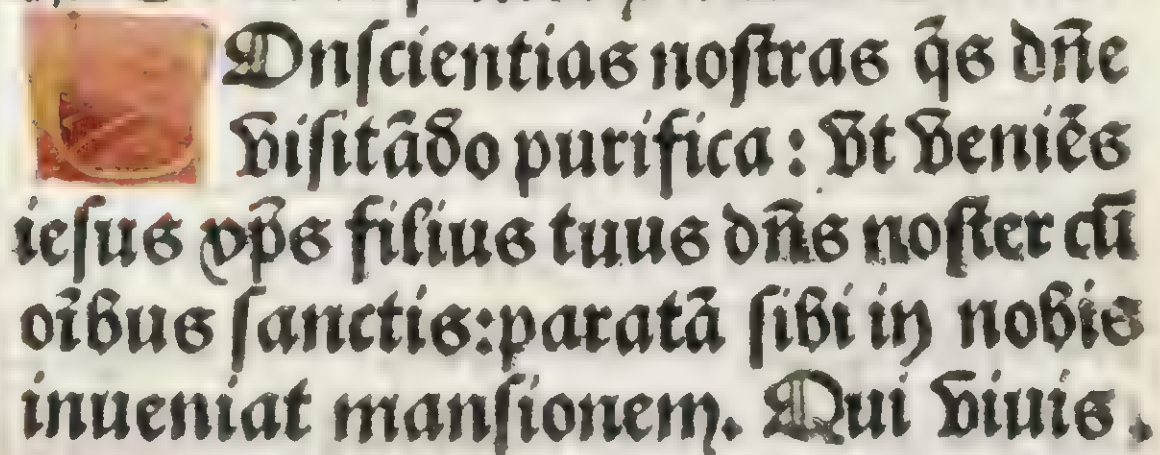 COnſcientias noſtras q̄s dn̄e
viſitādo purifica : vt veniēs
ieſus xp̄s filius tuus dn̄s noſter cū
oībus ſanctis:paratā ſibi in nobis
inueniat manſionem. Qui viuis.